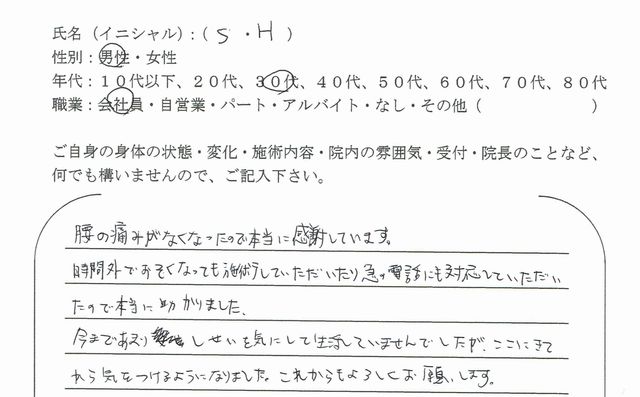 氏名（イニシャル）：（ S ・ H ）
性別：男性・女性
年代：１０代以下、２０代、３０代、４０代、５０代、６０代、７０代、８０代
職業：会社員・自営業・パート・アルバイト・なし・その他（　　　　　　）
ご自身の身体の状態・変化・施術内容・院内の雰囲気・受付・院長のことなど、
何でも構いませんので、ご記入下さい。
腰の痛みがなくなったので本当に感謝しています。
時間外でおそくなっても施術していただいたり急な電話にも対応していただい
たので本当に助かりました、
今まであまり しせいを気にして生活していませんでしたが、ここにきて
から気をつけるようになりました。これからもよろしくお願いします。